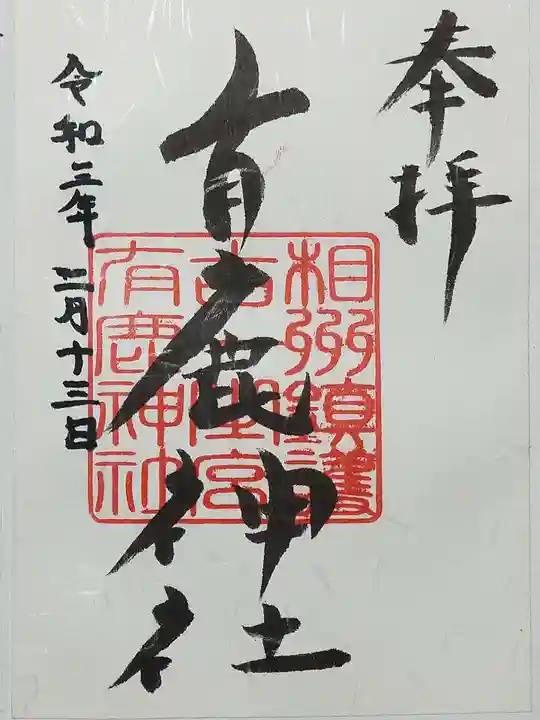 奉拝
有鹿神社
相州鎮護
古座宮
有鹿神社
令和三年 二月十三日